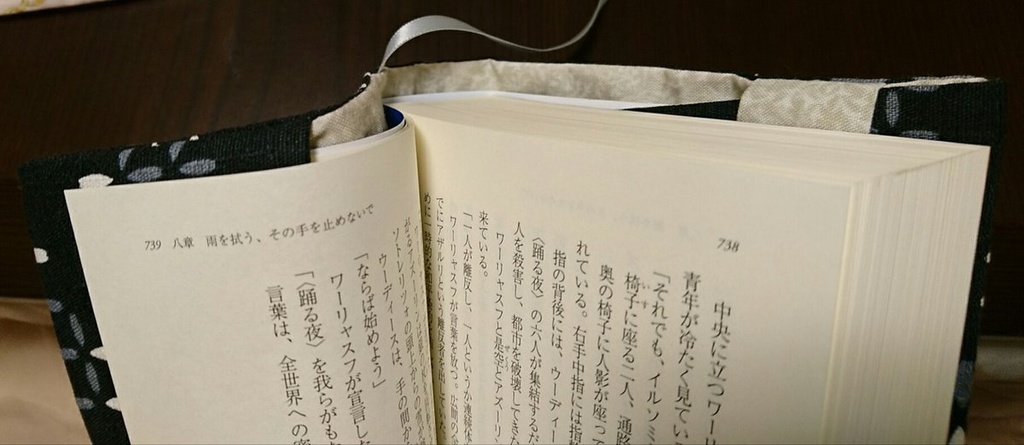 738
中央に立つワー
青年が冷たく見てい
「それでも、イルソミ
椅子に座る二人、通路
奥の椅子に人影が座って
れている。右手中指には指
指の背後には、ウーディー
〈踊る夜〉の六人が集結するだ
人を殺害し、都市を破壊してきた
ワーリャスフと是空とアズーリン
来ている。
「一人が離反し、一人というか連続体
ワーリャスフが言葉を放つ。広間の
でにアザルリという離反者を出して
739 八章 雨を拭う、その手を止めないで
ソトレリツォの頭上からの
ウーディースは、手の間か
「ならば始めよう」
ワーリャスフが宣言した
「〈踊る夜〉を我らがもお
言葉は、全世界への